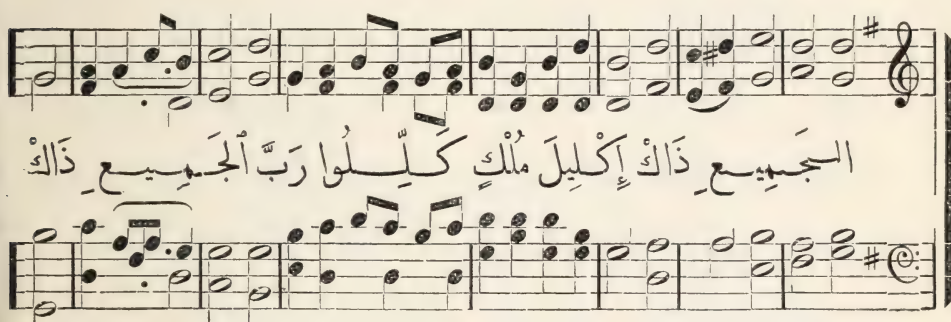 الجَمِيعِ ذَاكْ إِكْلِيلَ مُلْكٍ كَلِّلُوا رَبَّ ٱلْجَمِيعِ ذَاكْ